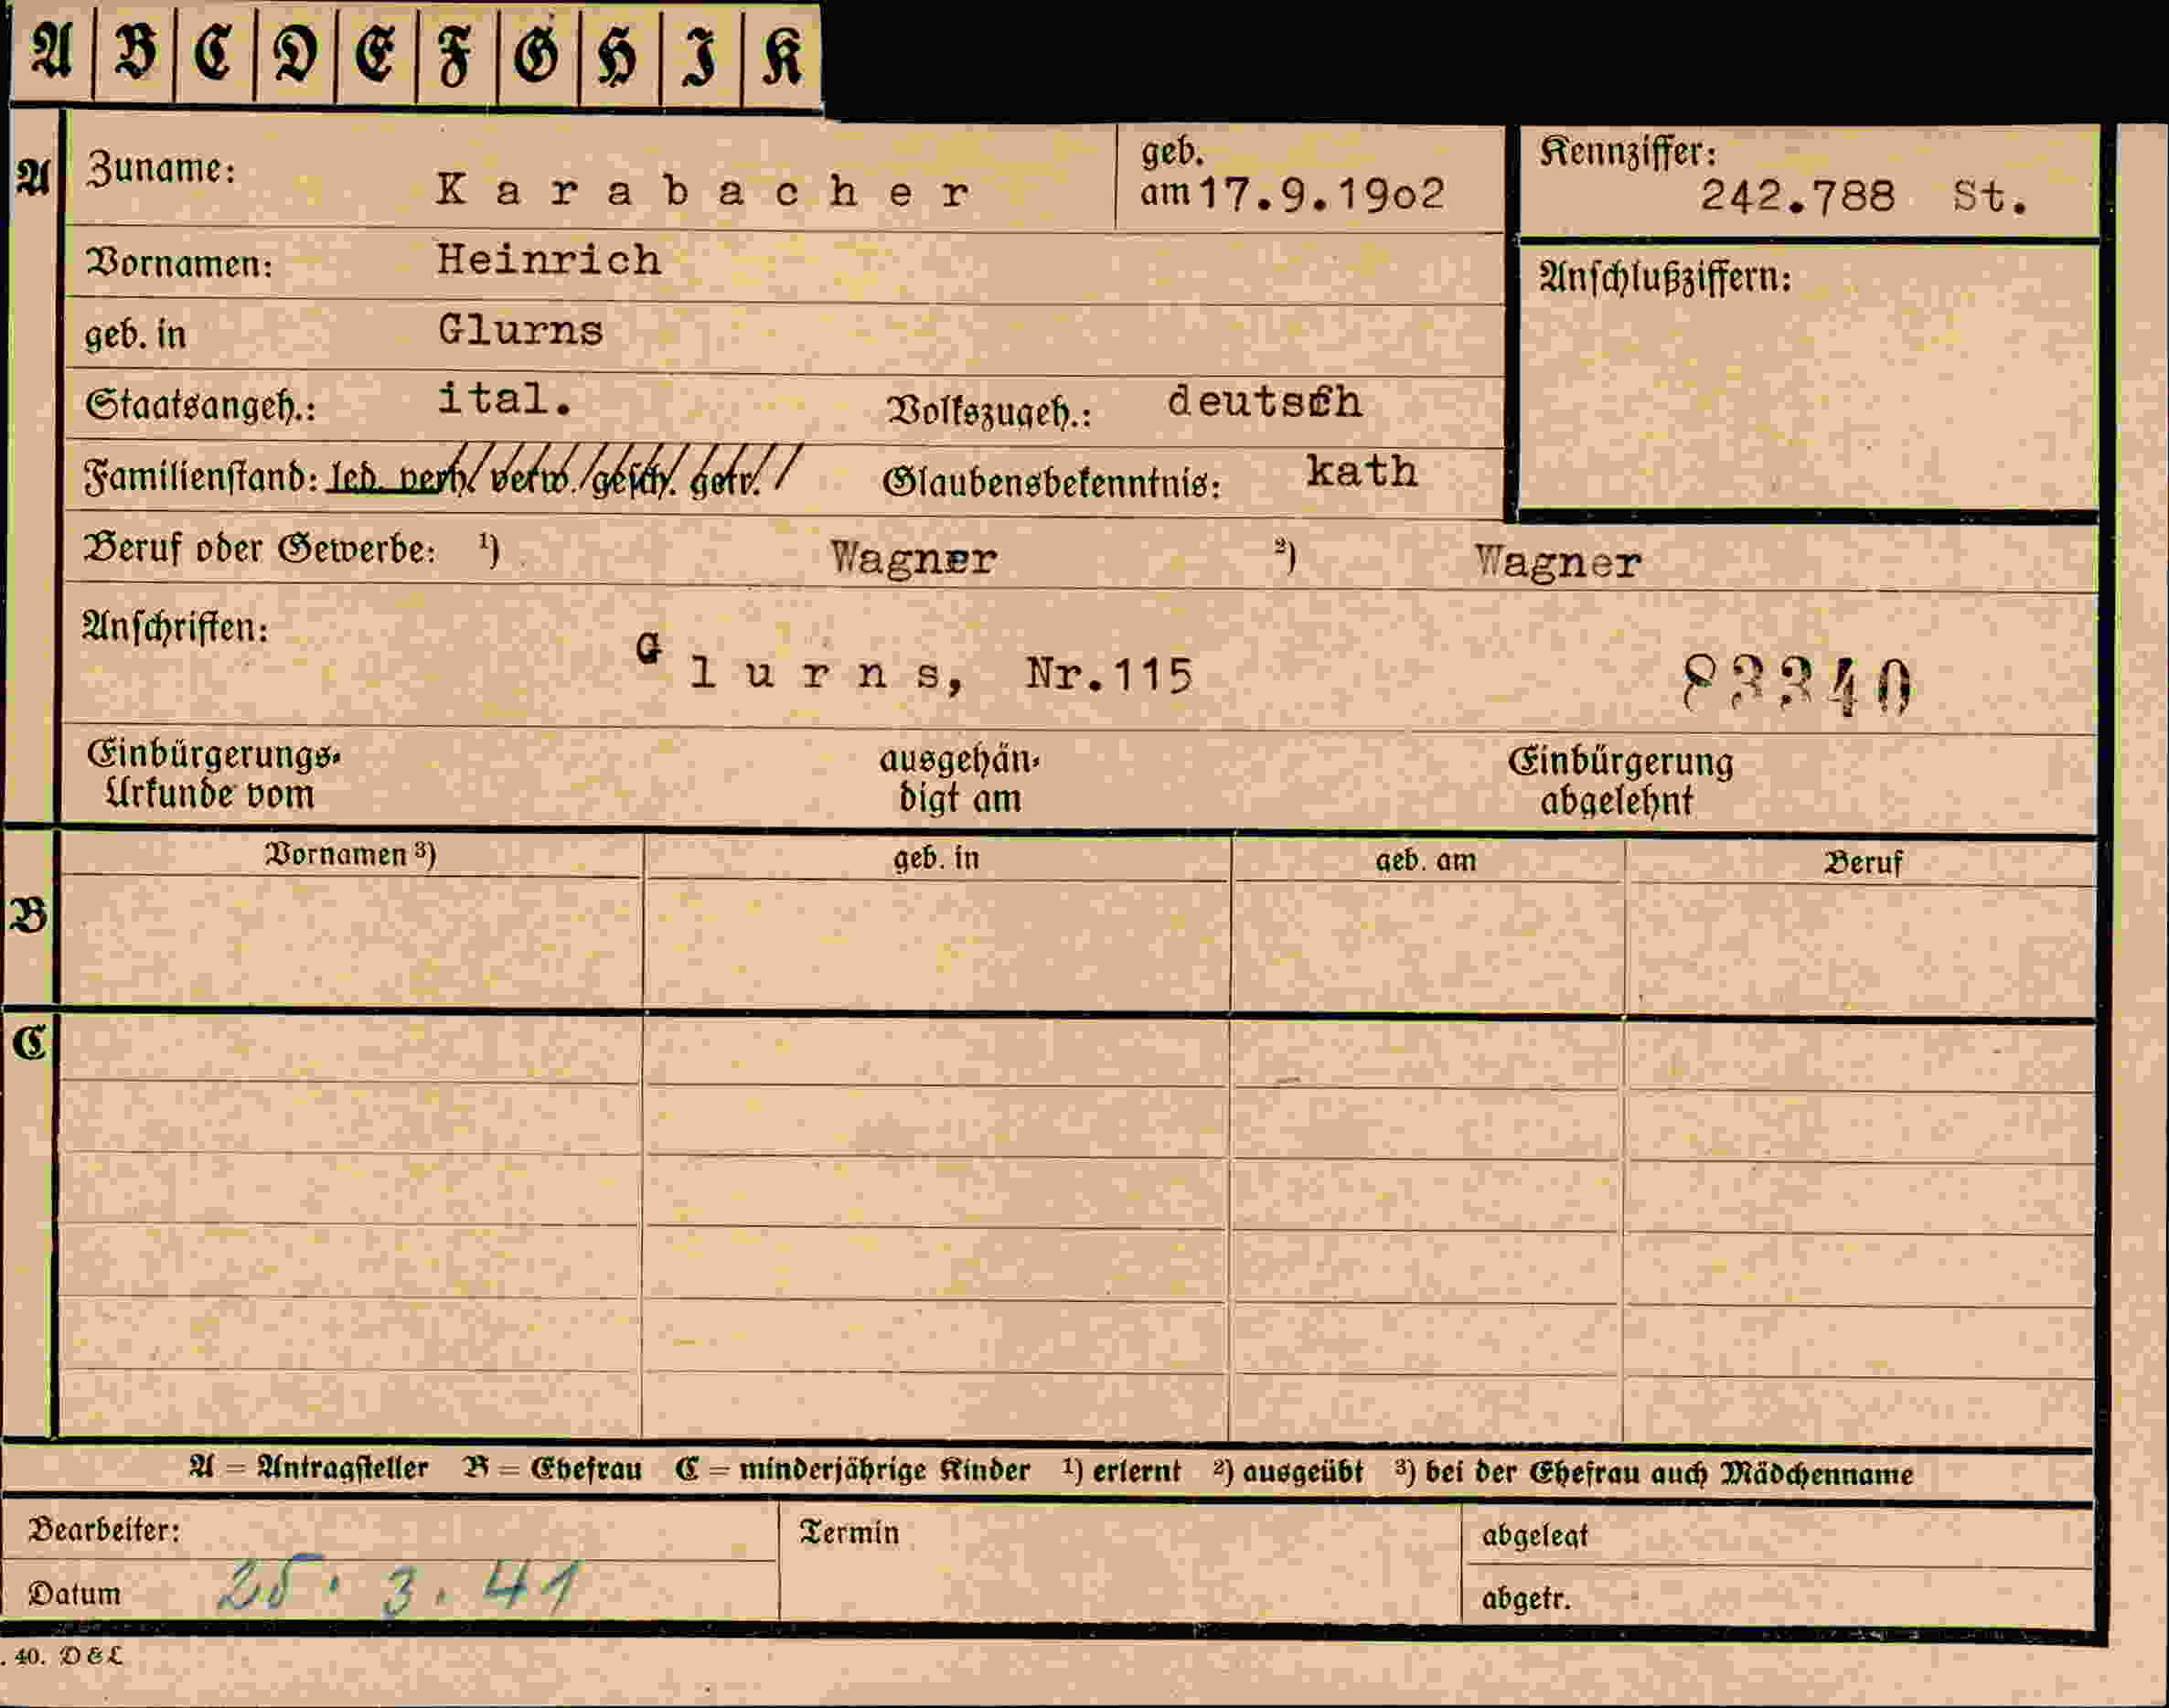 A B C D E F G H I K
A Zuname: Karabacher geb. am 17.9.19o2 Kennziffer: 242.788 St.
Vornamen: Heinrich Anschlußziffern:
geb. in Glurns
Staatsangeh.: ital. Volkszugeh.: deutsch
Familienstand: led. verh. verw. gesch. getr. Glaubensbekenntnis: kath
Beruf oder Gewerbe: 1) Wagner 2) Wagner
Anschriften: Glurns, Nr.115 83340
Einbürgerungs-Urkunde vom ausgehändigt am Einbürgerung abgelehnt
Vornamen 3) geb. in geb. am Beruf
B
C
A = Antragsteller B = Ehefrau C = minderjährige Kinder 1) erlernt 2) ausgeübt 3) bei der Ehefrau auch Mädchenname
Bearbeiter: Termin abgelegt
Datum 25. 3. 41 abgetr.
. 40. D & L